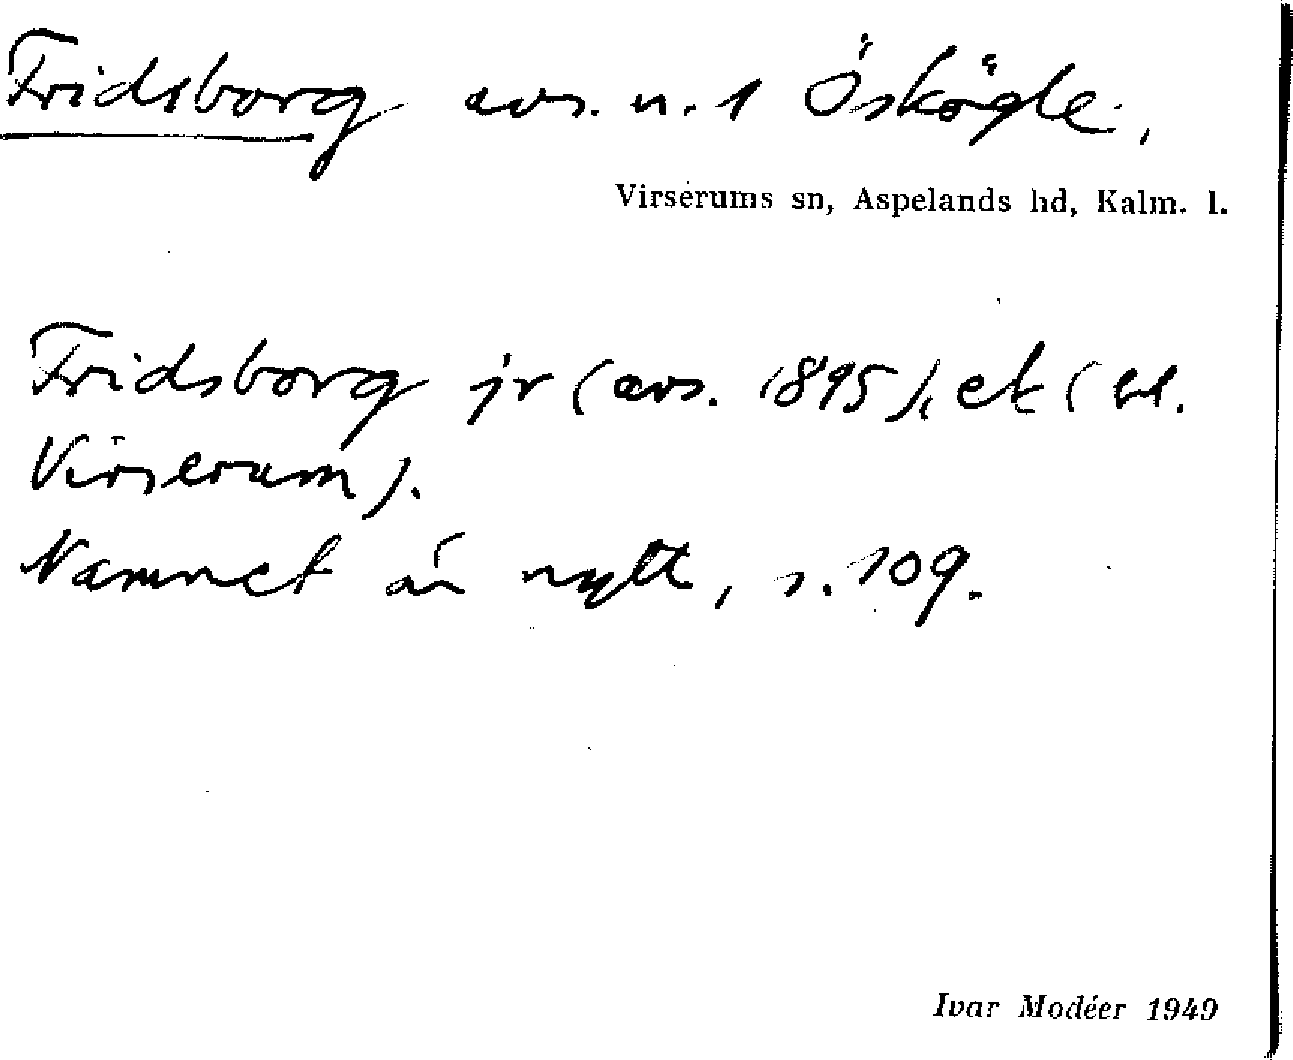 Fridsborg avs. u. 1 Öskögle,
Virserums sn, Aspelands hd, Kalm. l.
Fridsborg jr (avs. 1895), ek (bl.
Virserum).
Namnet är nytt, s. 109.
Ivar Modéer 1949